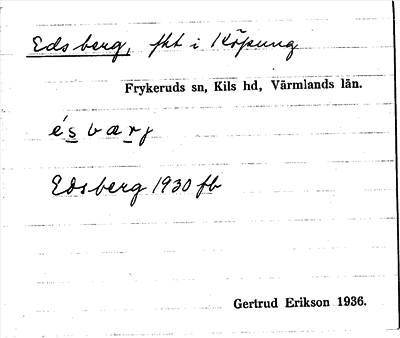 Edsberg, fkt i Köpung
Frykeruds sn, Kils hd, Värmlands län.
é s b æ r j
Edsberg 1930 fb
Gertrud Erikson 1936.